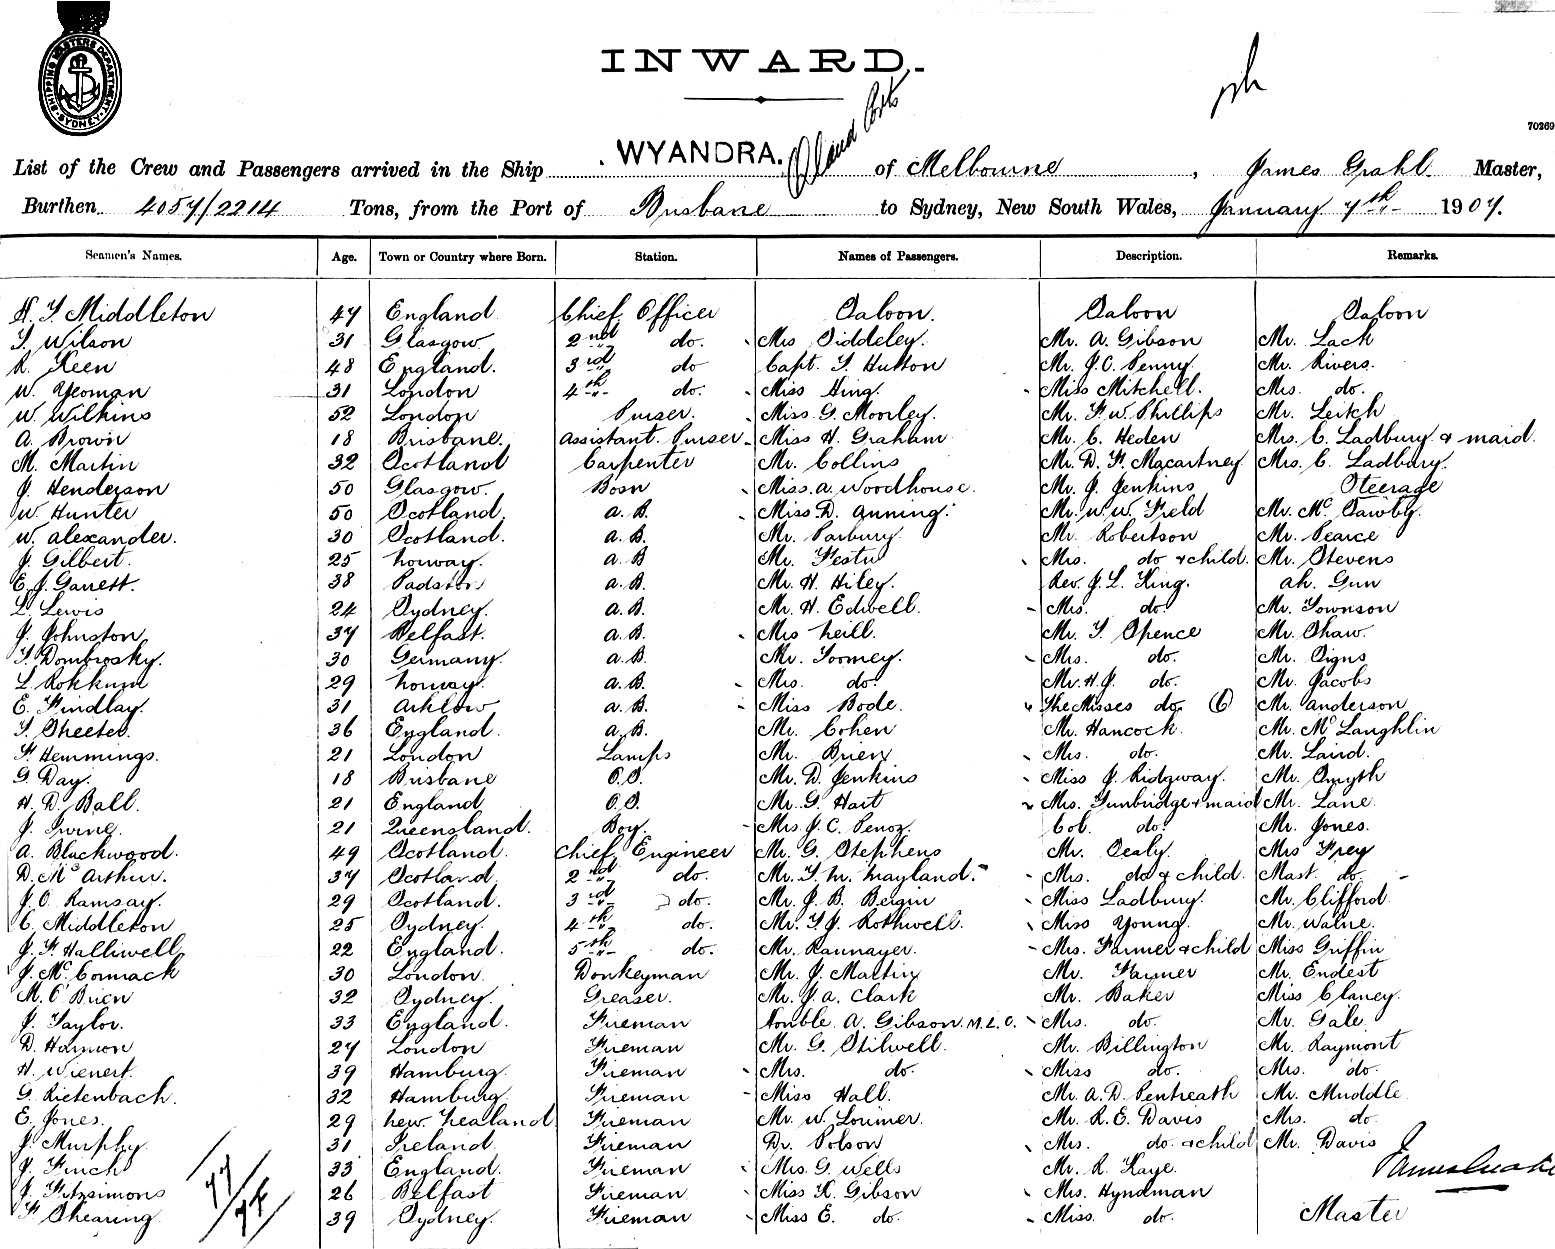 SHIPPING MASTERS DEPARTMENT SYDNEY
INWARD.
70269
List of the Crew and Passengers arrived in the Ship WYANDRA. of Melbourne, James Grahl Master,
Burthen 4057/2214 Tons, from the Port of Brisbane to Sydney, New South Wales, January 7th 1907.
Seamen's Names. Age. Town or Country where Born. Station. Names of Passengers. Description. Remarks.
Middleton 47 England Chief Officer Saloon. Saloon Saloon
T. Wilson 31 Glasgow 2nd do. Mrs Siddeley. Mr. A. Gibson Mr. Lack
R. Keen 48 England. 3rd do Capt. T. Hutton Mr. J.C. Penny. Mr. Rivers.
W. Yeoman 31 London 4th do. Miss King. Miss Mitchell. Mrs. do.
W. Wilkins 52 London Purser. Miss G. Moorley. Mr. F.W. Phillips Mr. Leitch
A. Brown 18 Brisbane. Assistant Purser Miss H. Graham Mr. C. Heden Mrs. C. Ladbury & maid.
M. Martin 32 Scotland Carpenter Mr. Collins Mr. D. F. Macartney Mrs. C. Ladbury.
J. Henderson 50 Glasgow. Bosn Miss. A. Woodhouse. Mr. J. Jenkins Steerage
W. Hunter 50 Scotland. A.B. Miss D. Anning. Mr. W.W. Field Mr. Mc Sawby.
W. Alexander. 30 Scotland. A.B. Mr. Parbury. Mr. Robertson Mr. Pearce
J. Gilbert. 25 Norway. A.B Mr. Mrs. do & child. Mr. Stevens
E. J. Garrett. 38 A.B. Mr. H. Hiley. Rev. J. L. King. Ah. Gun
L. Lewis 24 Sydney. A.B. Mr. H. Edwell. Mrs. do. Mr. Townson
J. Johnston 37 Belfast. A.B. Mrs Neill. Mr. T. Spence Mr. Shaw.
T. Dombrosky. 30 Germany. A.B. Mr. Toomey. Mrs. do. Mr. Signs
L. Rokkum 29 Norway. A.B. Mrs. do. Mr. H.J. do. Mr. Jacobs
E. Findlay. 31 Arklow A.B. Miss Bode. The Misses do. (6) Mr. Anderson
T. 36 England. A.B. Mr. Cohen Mr. Hancock. Mr. Mc Laughlin
F. Hemmings. 21 London Lamps Mr. Brien Mrs. do. Mr. Laird.
G. Day. 18 Brisbane O.S. Mr. D. Jenkins Miss J. Ridgway. Mr. Smyth
H. D. Ball. 21 England O.S. Mr. G. Hart Mrs. Tunbridge & maid Mr. Lane
J. Irvine. 21 Queensland. Boy. Mrs. J. C. Penoz. Col. do. Mr. Jones.
A. Blackwood. 49 Scotland. Chief Engineer Mr. G. Stephens Mr. Sealy. Mrs Frey
D. Mc Arthur. 37 Scotland. 2nd do. Mr. T. M. Mayland. Mrs. do & child. Mast. do
J. O. Ramsay. 29 Scotland. 3rd do. Mr. J. B. Beigin Miss Ladbury. Mr. Clifford.
C. Middleton 25 Sydney. 4th do. Mr. T. J. Rothwell. Miss Young. Mr. Walne.
J. F. Halliwell 22 England. 5th do. Mr. Rannayer. Mrs. Farmer & child Miss Griffin
J. Mc Cormack 30 London. Donkeyman Mr. J. Martin Mr. Farmer Mr. Endest
M. O'Brien 32 Sydney. Greaser. Mr. J. A. Clark Mr. Baker Miss Clancy.
J. Taylor. 33 England. Fireman Honble. A. Gibson. M.L.C. Mrs. do. Mr. Gale.
D. Harmon 27 London Fireman Mr. G. Stilwell. Mr. Billington Mr. Raymont
H. Wienert. 39 Hamburg. Fireman Mrs. do. Miss do. Mrs. do.
G. Rietenbach. 32 Hamburg. Fireman Miss Hall. Mr. A. D. Pentreath Mr. Muddle.
E. Jones. 29 New Zealand Fireman Mr. W. Lorimer. Mr. R. E. Davis Mrs. do.
J. Murphy. 31 Ireland. Fireman Dr. Polson Mrs. do. & child Mr. Davis
J. Finch 33 England. Fireman Mrs. G. Wells Mr. R. Kaye.
J. Fitzsimons 26 Belfast Fireman Miss K. Gibson Mrs. Hyndman
F. Shearing. 39 Sydney. Fireman Miss E. do. Miss. do. Master